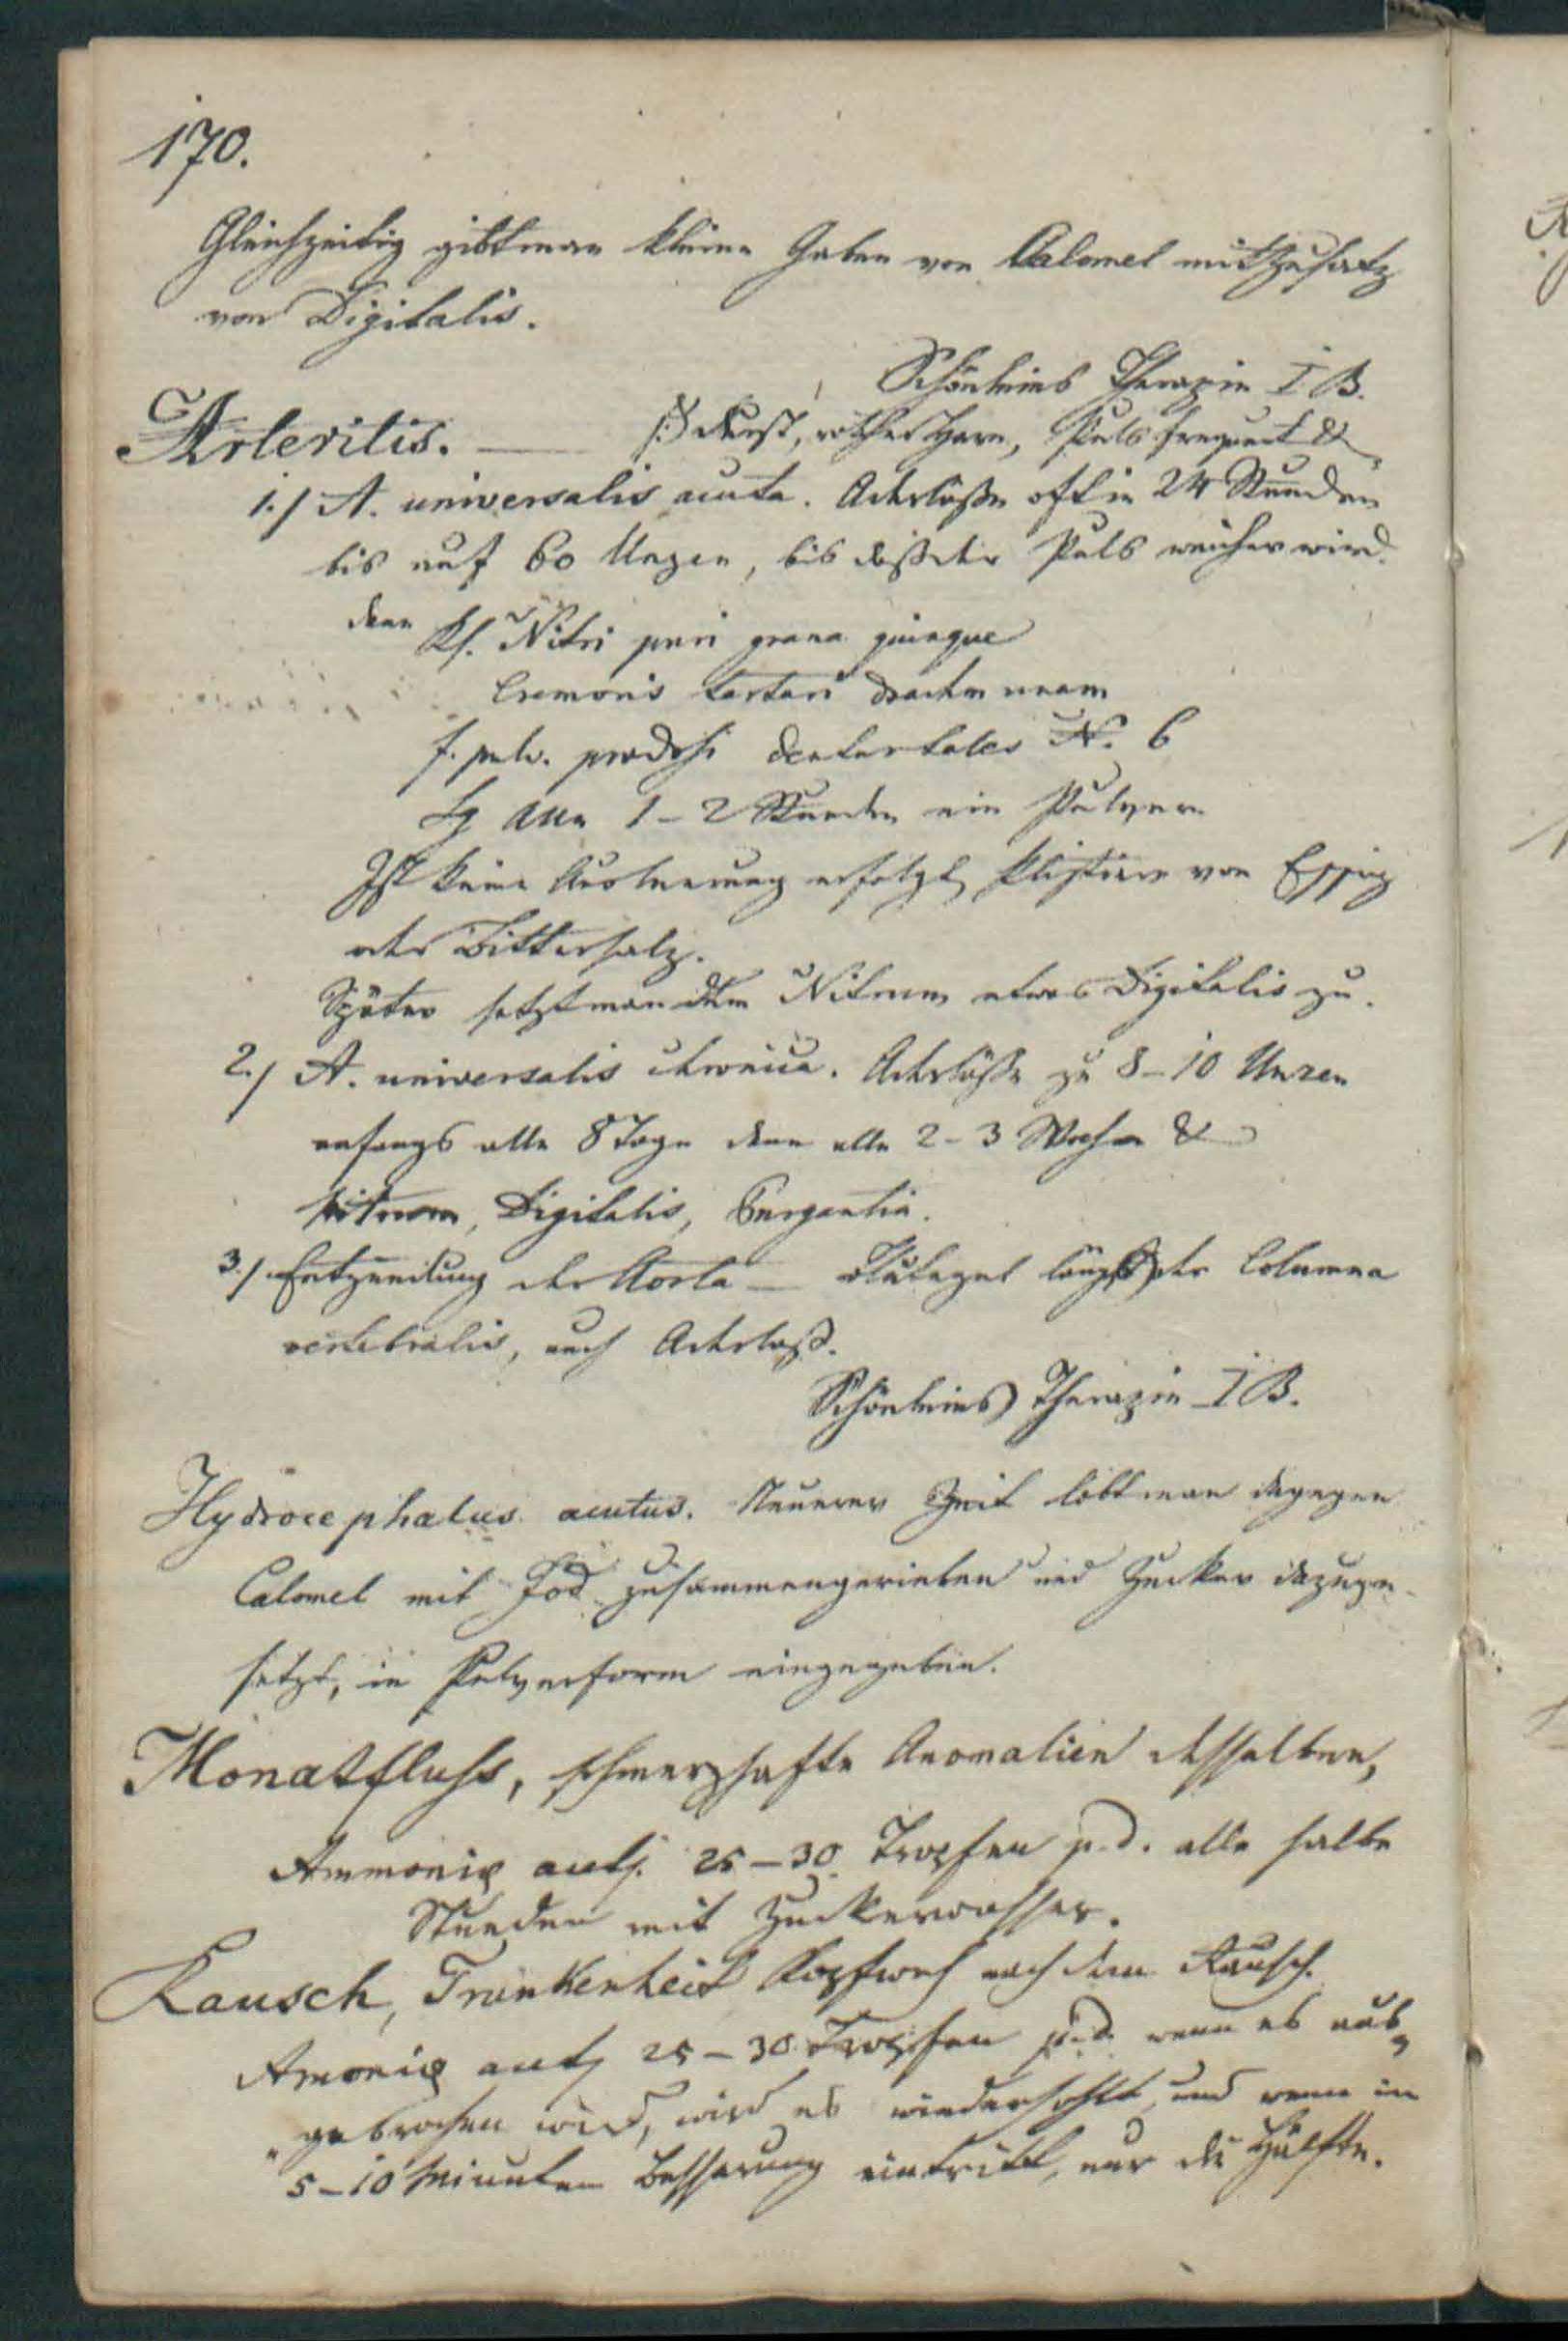 170.
Gleichzeitig gibt man kleine Gaben von Calomel mit Zusatz
von Digitalis.
Schönleins Therapie I B.
Arteritis. — Durst, rother Harn, Puls frequent &
1./ A. universalis acuta. Aderlässe oft in 24 Stunden
bis auf 60 Unzen, bis daß der Puls weicher wird.
dann Rf. Nitri puri grana quinque
Cremoris tartari drachm unam
f. pulv. pro dosi dentur tales N. 6
Sg alle 1-2 Stunden ein Pulver
Ist keine Ausleerung erfolgt, Klistiere von Essig
oder Bittersalz.
Später setzt man dem Nitrum etwas Digitalis zu.
2./ A. universalis chronica. Aderlässe zu 8-10 Unzen
anfangs alle 8 Tage dann alle 2-3 Wochen &
Nitrum, Digitalis, Purgantia.
3./ Entzündung der Aorta — Blutegel längst der Columna
vertebralis, auch Aderlaß.
Schönleins Therapie I B.
Hydrocephalus acutus. Neuerer Zeit lobt man dagegen
Calomel mit Jod zusammengerieben und Zucker dazuge-
setzt, in Pulverform eingegeben.
Monatfluss, schmerzhafte Anomalien desselben,
Ammoniæ 25-30 Tropfen p. d. alle halbe
Stunden mit Zuckerwasser.
Rausch, Trunkenheit Kopfweh nach dem Rausch.
Amoniæ 25-30 Tropfen p. d. wenn es aus-
gebrochen wird, wird es wiederhohlt, und wenn in
5-10 Minuten Besserung eintritt, nur die Hälfte.